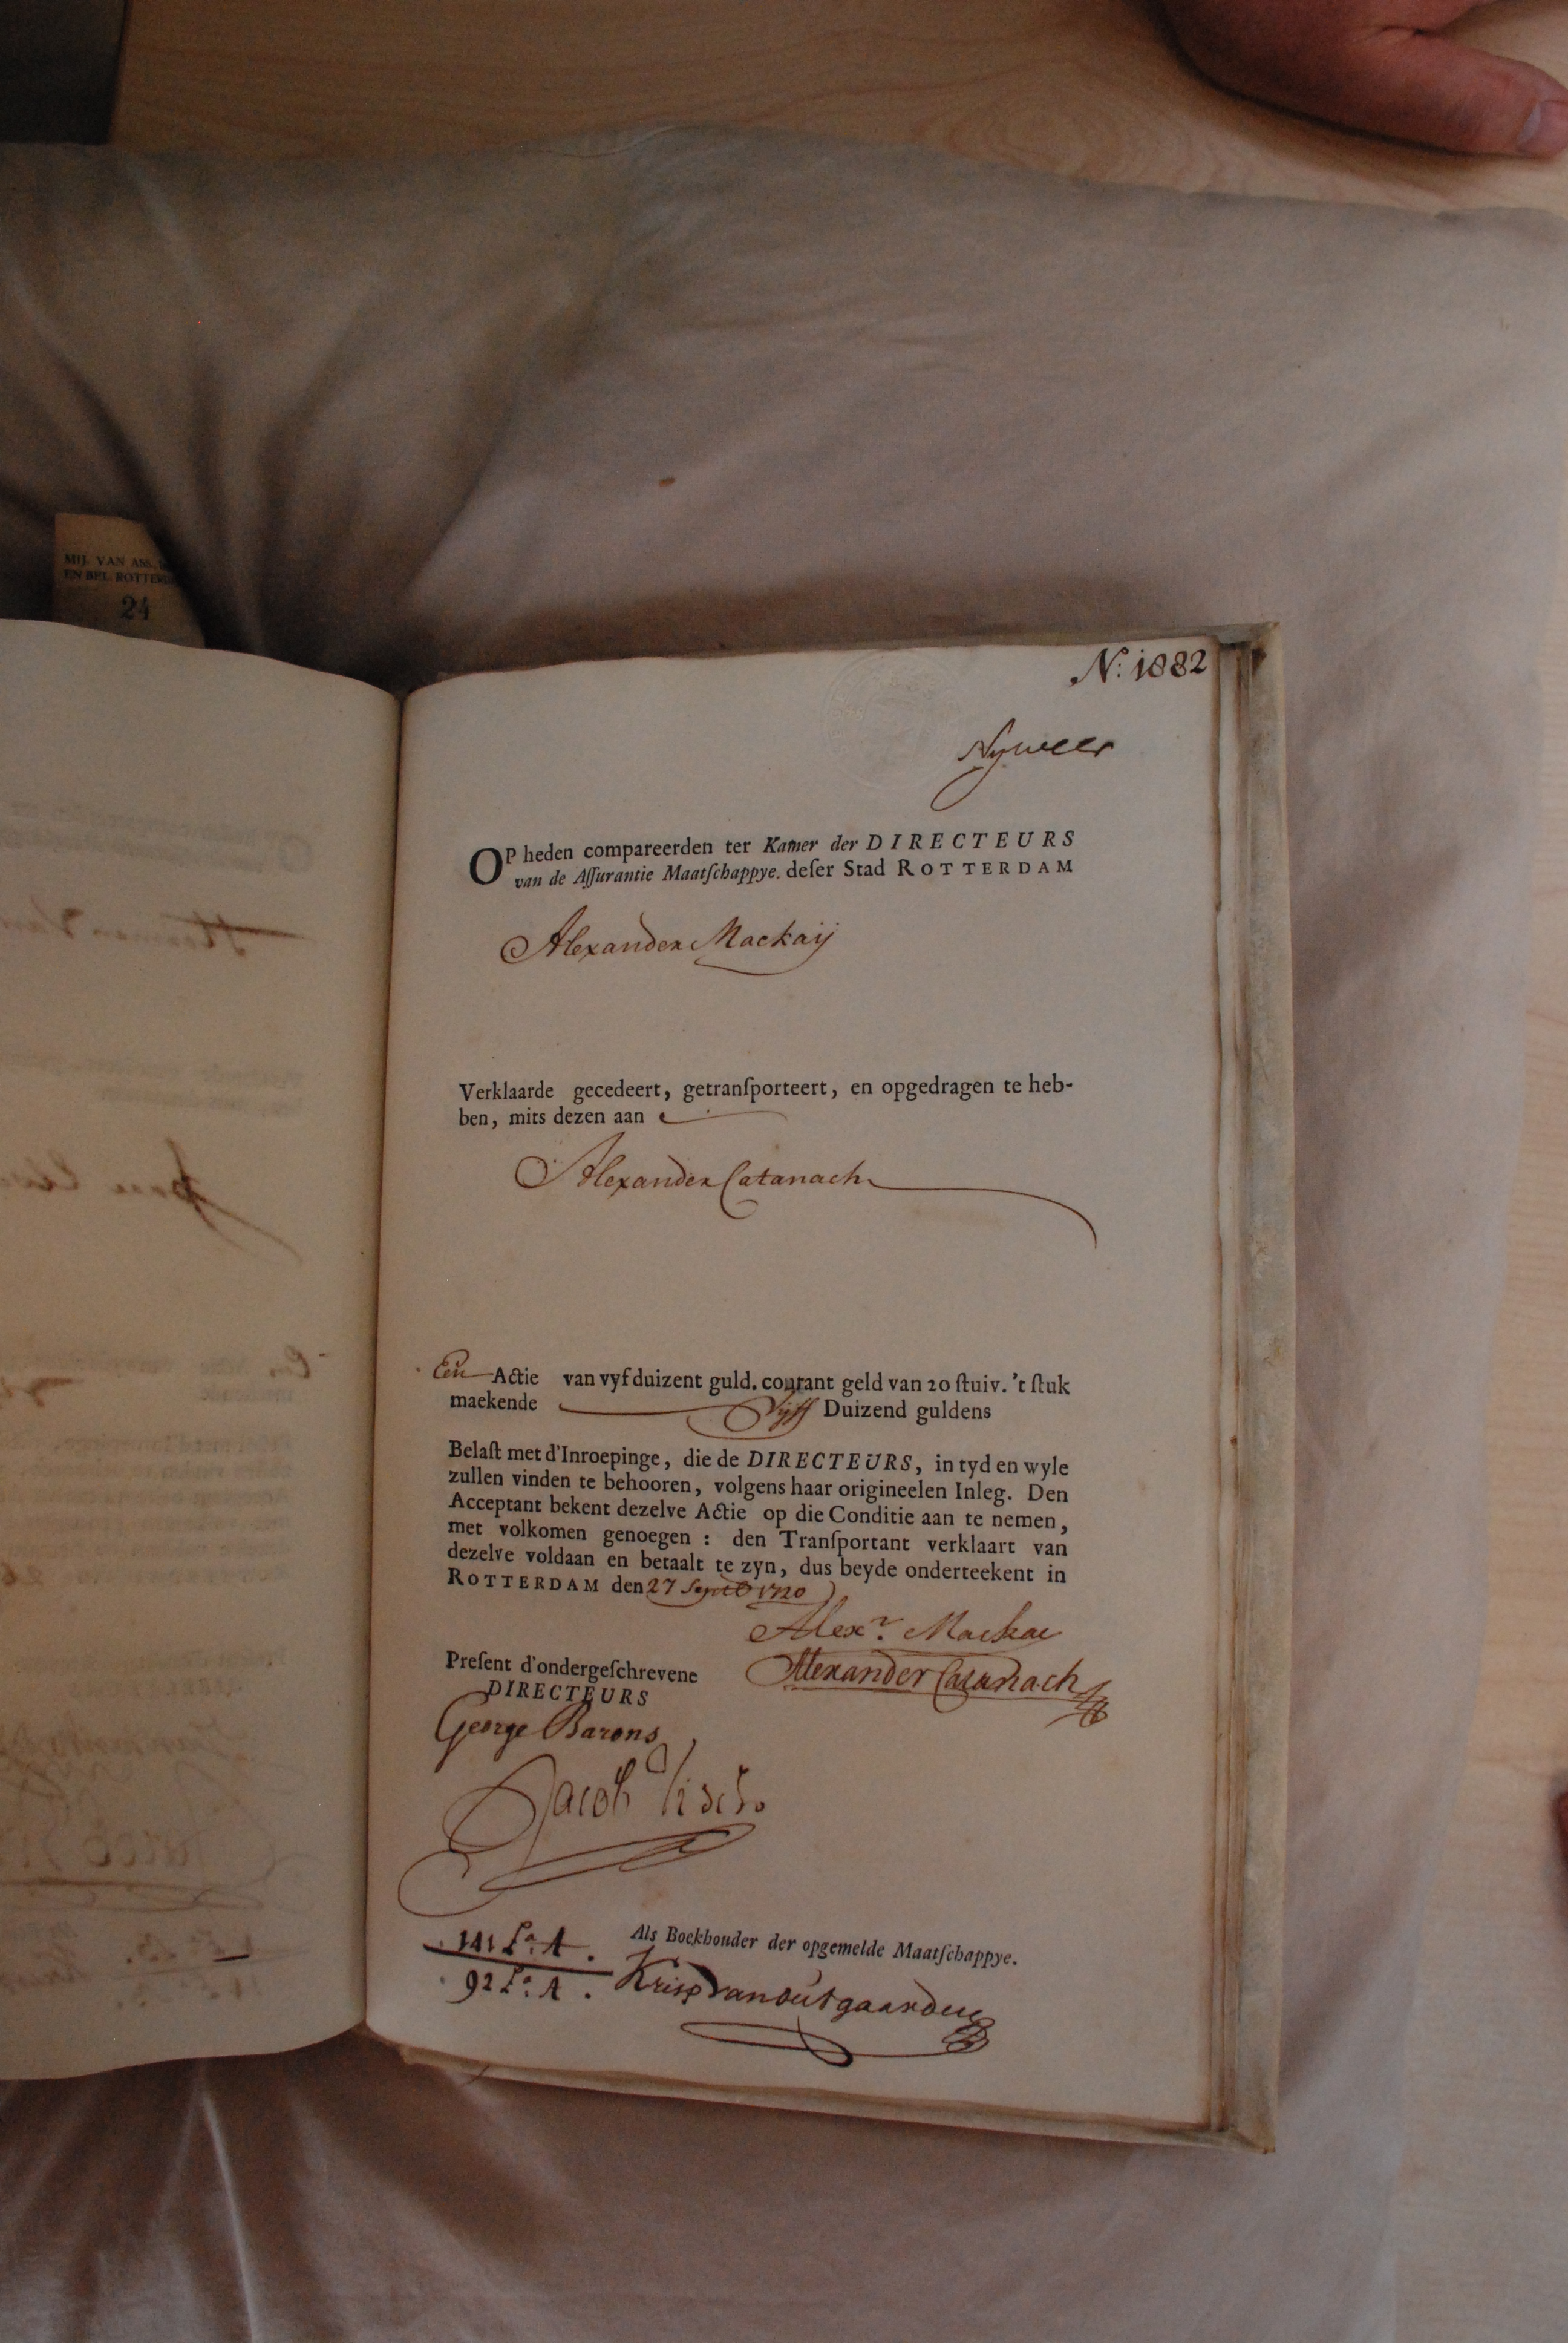 MIJ. VAN ASS.
EN BEL. ROTTERD
24
N: 1882
Nyweer
OP heden compareerden ter Kamer der DIRECTEURS
van de Aſſurantie Maatſchappye. deſer Stad ROTTERDAM
Alexander Mackaij
Verklaarde gecedeert, getranſporteert, en opgedragen te heb-
ben, mits dezen aan
Alexander Catanach
Een Actie van vyf duizent guld. courant geld van 20 ſtuiv. 't ſtuk
maekende Vijff Duizend guldens
Belaſt met d'Inroepinge, die de DIRECTEURS, in tyd en wyle
zullen vinden te behooren, volgens haar origineelen Inleg. Den
Acceptant bekent dezelve Actie op die Conditie aan te nemen,
met volkomen genoegen : den Tranſportant verklaart van
dezelve voldaan en betaalt te zyn, dus beyde onderteekent in
ROTTERDAM den 27 Sept 1720
Alexr. Mackae
Alexander Catanach
Preſent d'ondergeſchrevene
DIRECTEURS
George Barons
Jacob
141 Lo: A.
92 Lo: A.
Als Boekhouder der opgemelde Maatſchappye.
Krisp van outgaarden